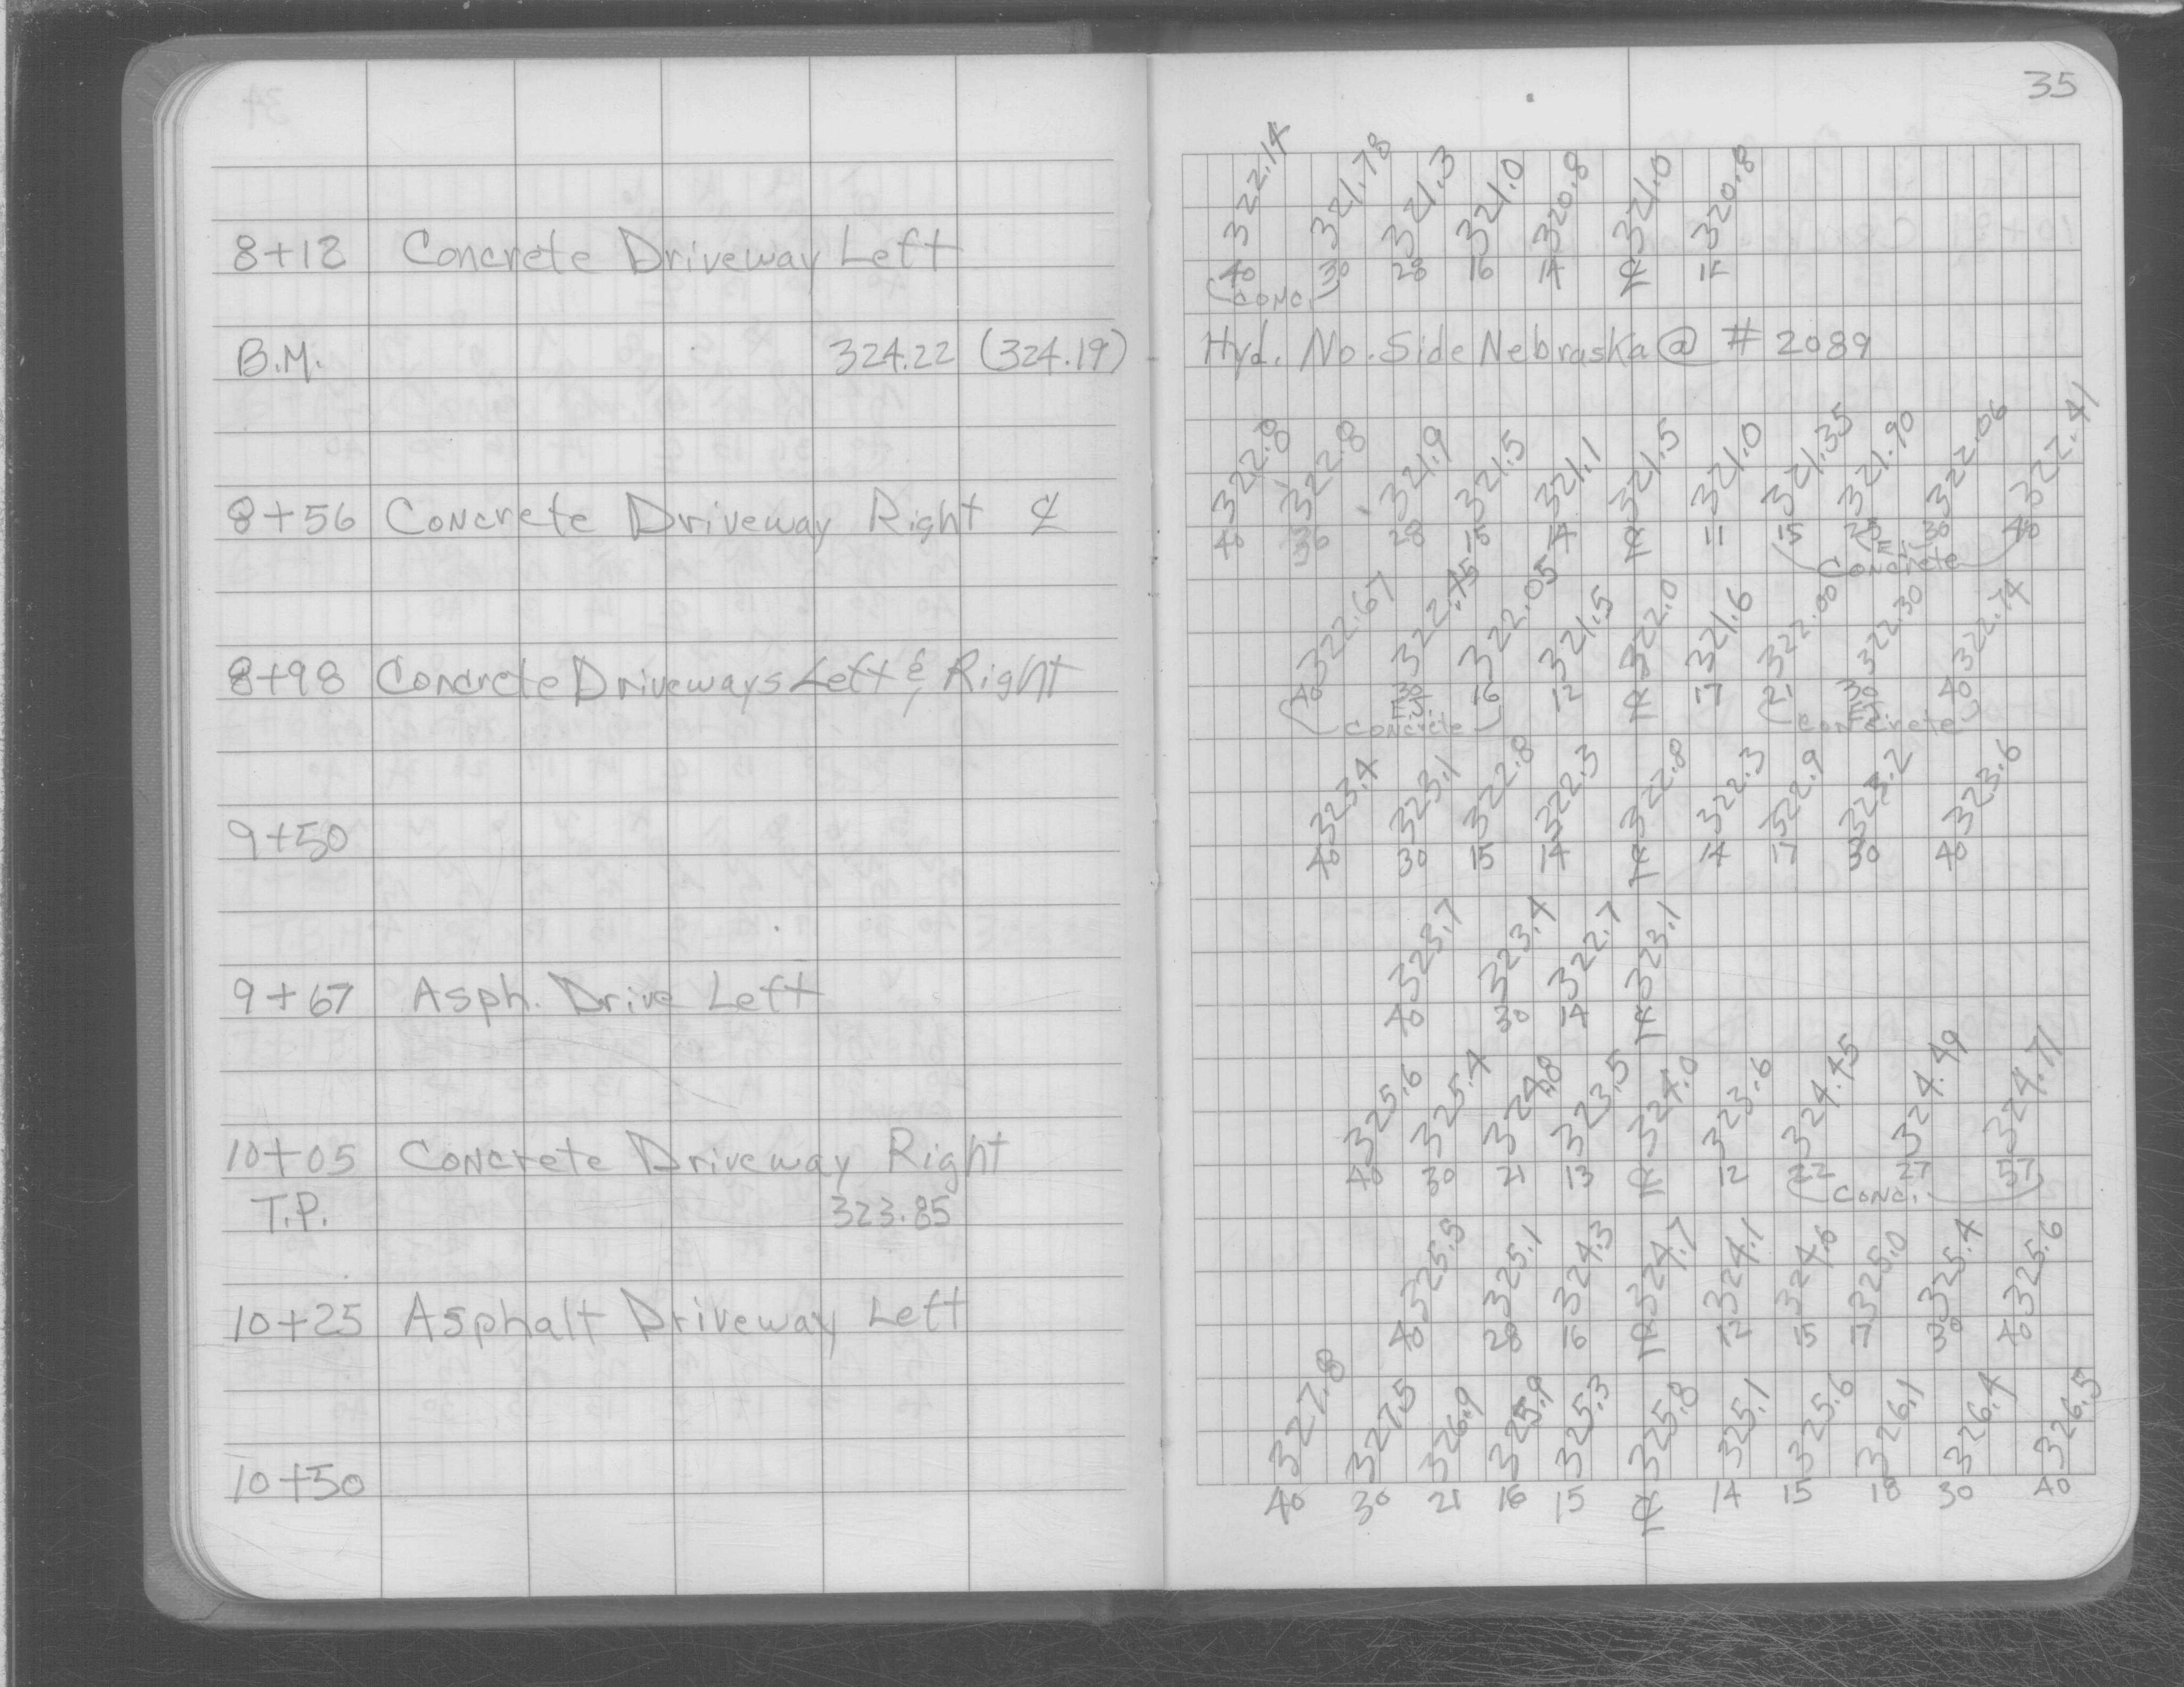 35
322.14 321.78 321.3 321.0 320.8 321.0 320.8
8+12 Concrete Driveway Left
40 30 28 16 14 ℄ 14
Conc.
B.M. 324.22 (324.19) Hyd. No. Side Nebraska @ # 2089
322.8 322.8 321.9 321.5 321.1 321.5 321.0 321.35 321.90 322.06 322.41
8+56 Concrete Driveway Right ℄
40 30 28 15 14 ℄ 11 15 25 30 40
Concrete
322.67 322.45 322.05 321.5 322.0 321.6 322.00 322.30 322.74
8+98 Concrete Driveways Left & Right
40 30 16 12 ℄ 17 21 30 40
Concrete Concrete
323.4 323.1 322.8 322.3 322.8 322.3 322.9 323.2 323.6
9+50
40 30 15 14 ℄ 14 17 30 40
323.7 323.4 322.7 323.1
9+67 Asph. Drive Left
40 30 14 ℄
325.6 325.4 324.8 323.5 324.0 323.6 324.45 324.49 324.71
10+05 Concrete Driveway Right
40 30 21 13 ℄ 12 22 27 57
Conc.
T.P. 323.85
325.5 325.1 324.3 324.7 324.1 324.6 325.0 325.4 325.6
10+25 Asphalt Driveway Left
40 28 16 ℄ 12 15 17 30 40
327.8 327.5 326.9 325.9 325.3 325.8 325.1 325.6 326.1 326.4 326.5
10+50
40 30 21 16 15 ℄ 14 15 18 30 40